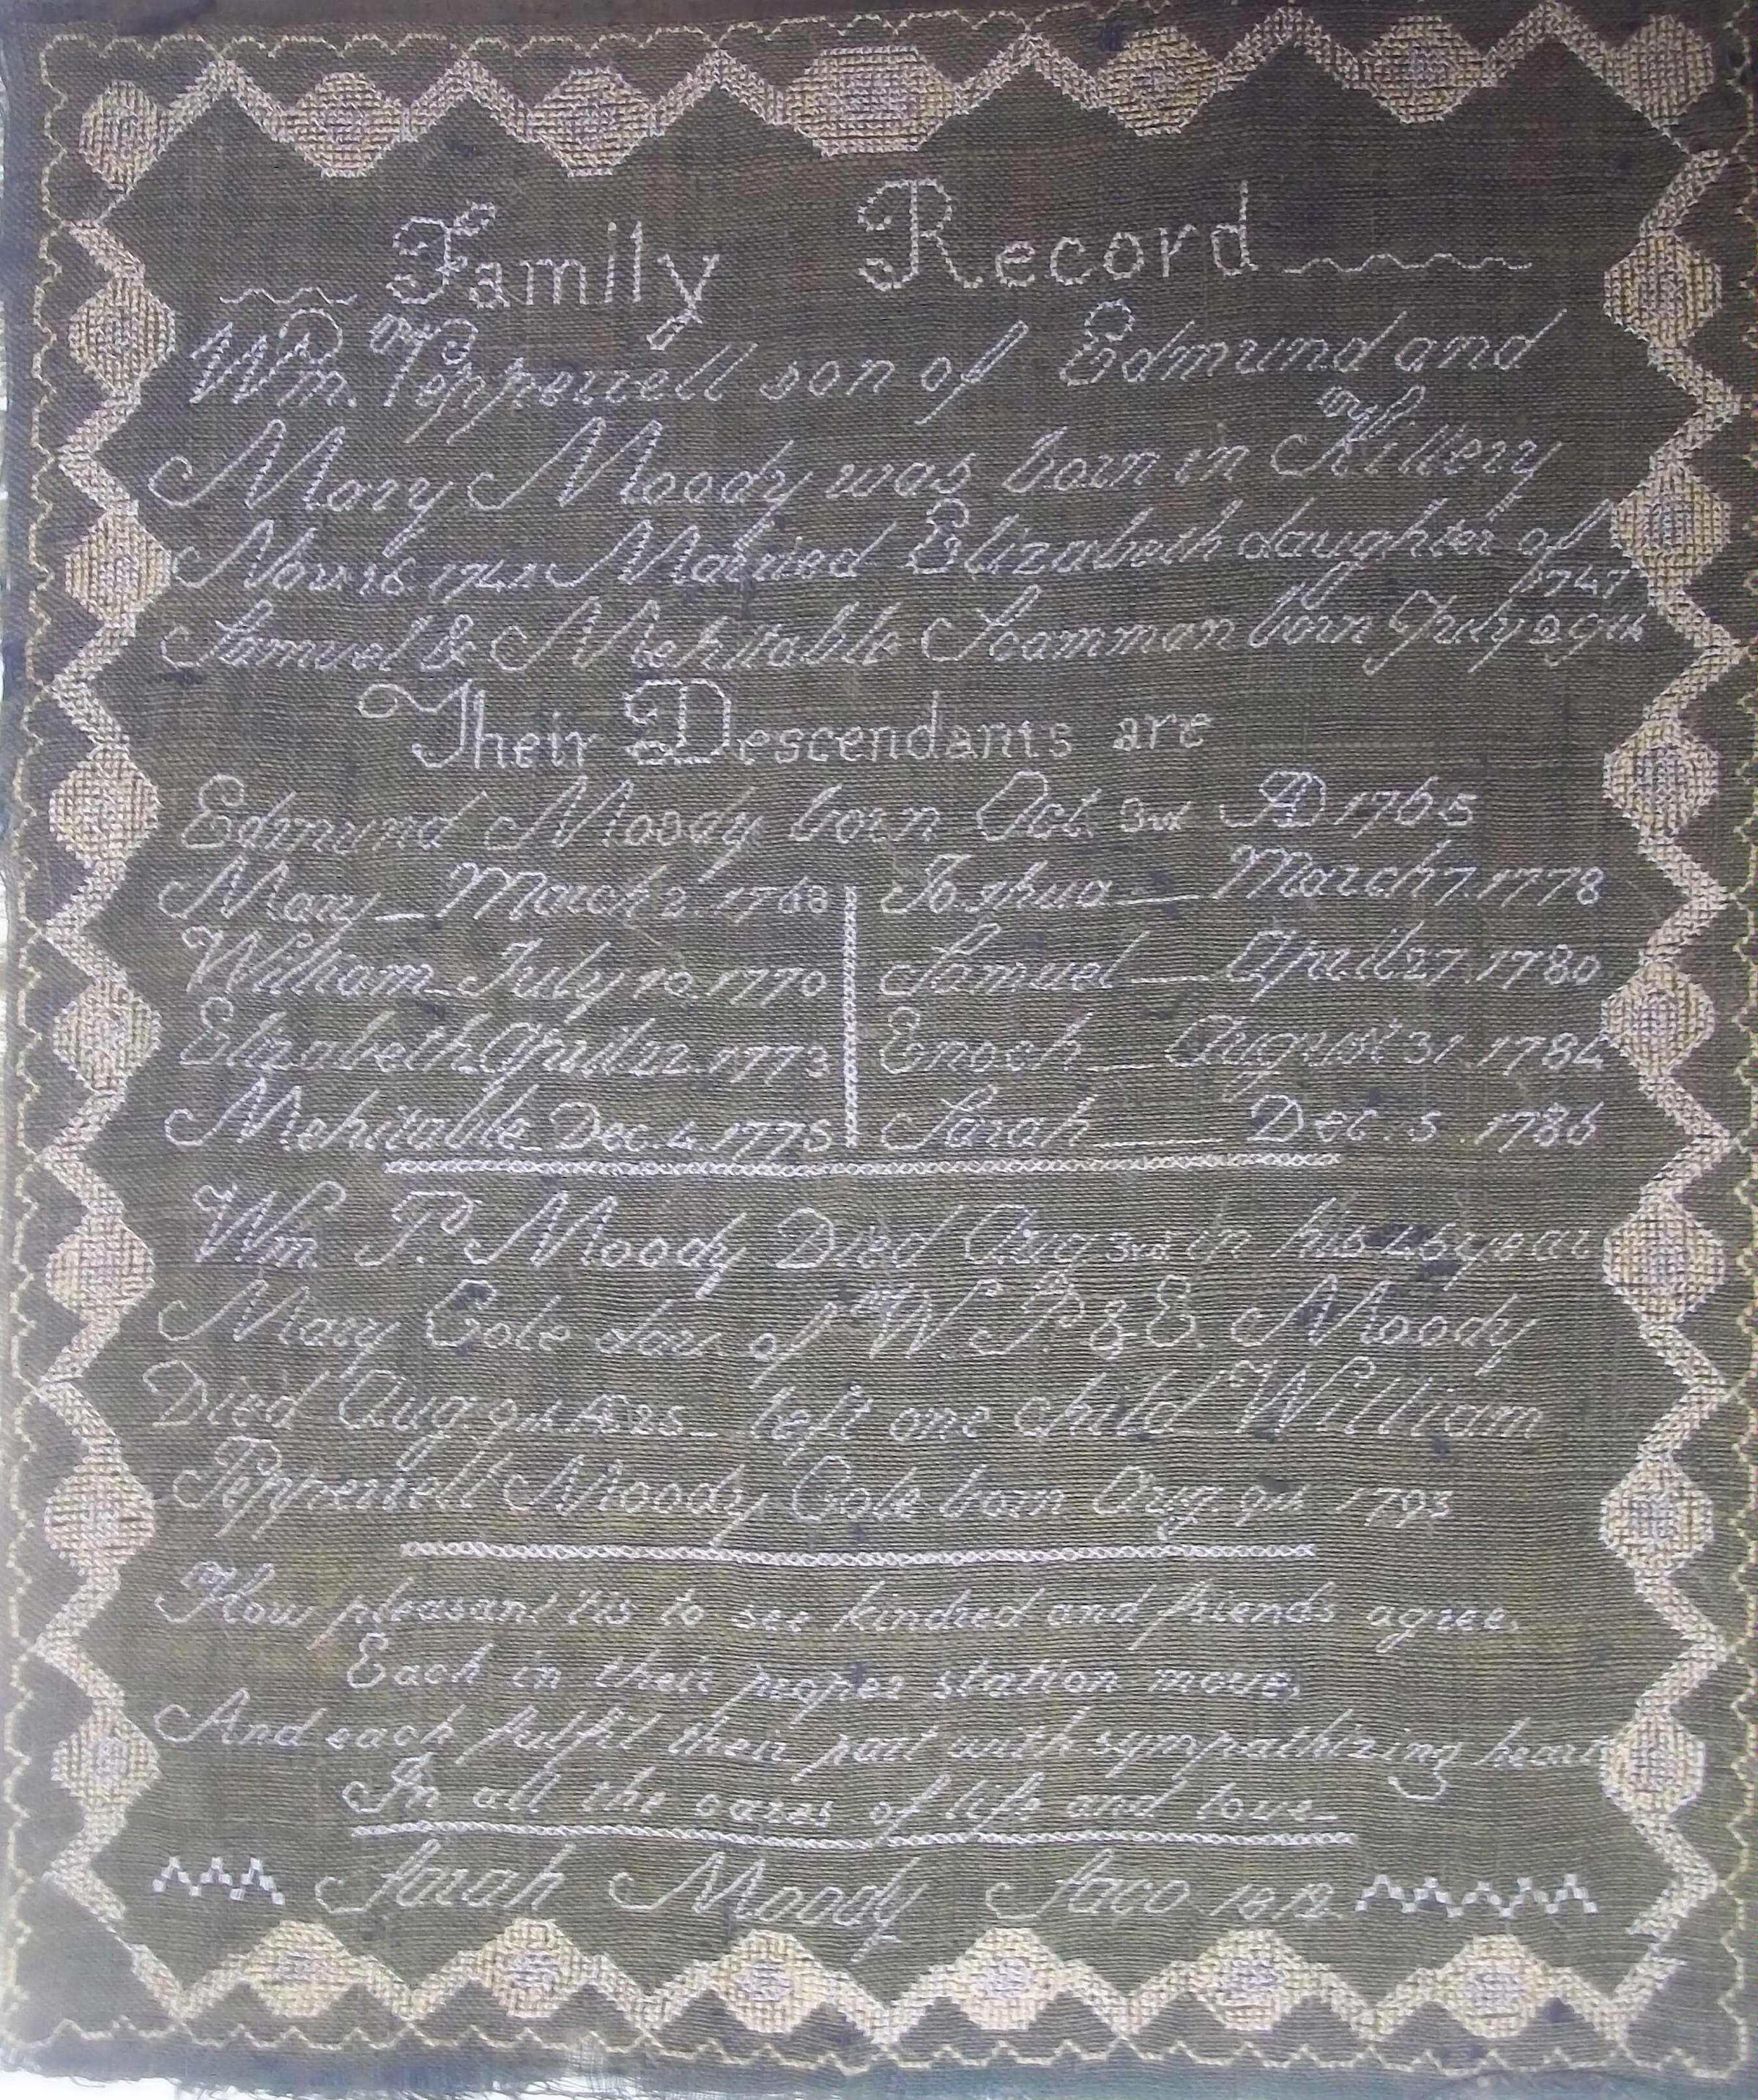 Family Record
Wm. Pepperrell son of Edmund and
Mary Moody was born in Kittery
Nov 16 Married Elizabeth daughter of
Samuel & Mehitable Scamman born July 29th 1747
Their Descendants are
Edmund Moody born Oct. 3rd AD 1765
Mary March 2. 1768
William July 10. 1770
Elizabeth April 22. 1773
Mehitable Dec. 4. 1775
Joshua March 7. 1778
Samuel April 27. 1780
Enoch August 31. 1784
Sarah Dec. 5. 1786
Wm. P. Moody Died Aug 3rd in his year
Mary Cole dau. of W. P. & E. Moody
Died Aug. 9th left one child William
Pepperrell Moody Cole born Aug 9th 1793
How pleasant tis to see kindred and friends agree.
Each in their proper station move,
And each fulfil their part with sympathizing heart
In all the cares of life and love
Sarah Moody Saco